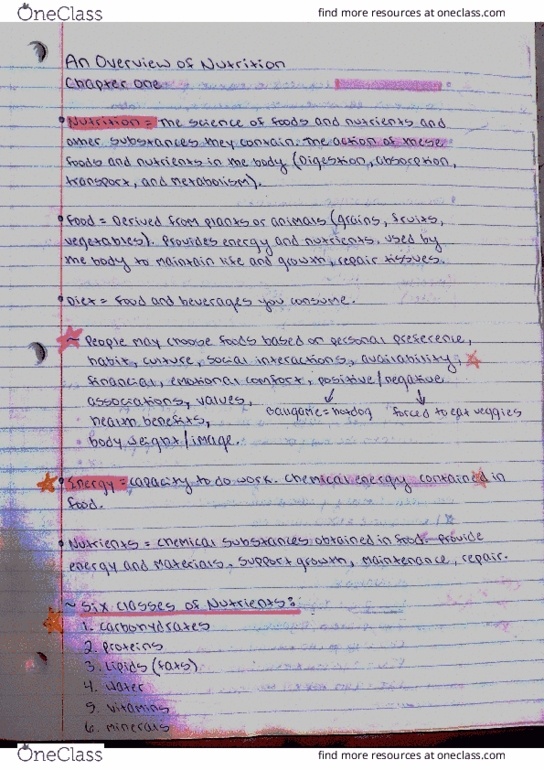 OneClass find more resources at oneclass.com
An Overview of Nutrition
Chapter one
• Nutrition = The science of foods and nutrients and
other substances they contain. The action of these
foods and nutrients in the body (Digestion, absorption,
transport, and metabolism).
• Food = Derived from plants or animals (grains, fruits,
vegetables). Provides energy and nutrients, used by
the body to maintain life and growth, repair tissues.
• Diet = Food and beverages you consume.
~ People may choose foods based on personal preference,
habit, culture, social interactions, availability,
financial, emotional comfort, positive/negative
associations, values,
calgarie = hotdog forced to eat veggies
health benefits,
body weight/image.
• Energy = capacity to do work. Chemical energy contained in
food.
• Nutrients = chemical substances obtained in food. Provide
energy and materials. Support growth, maintenance, repair.
~ Six classes of Nutrients:
1. carbohydrates
2. proteins
3. lipids (fats)
4. water
5. vitamins
6. minerals
OneClass find more resources at oneclass.com